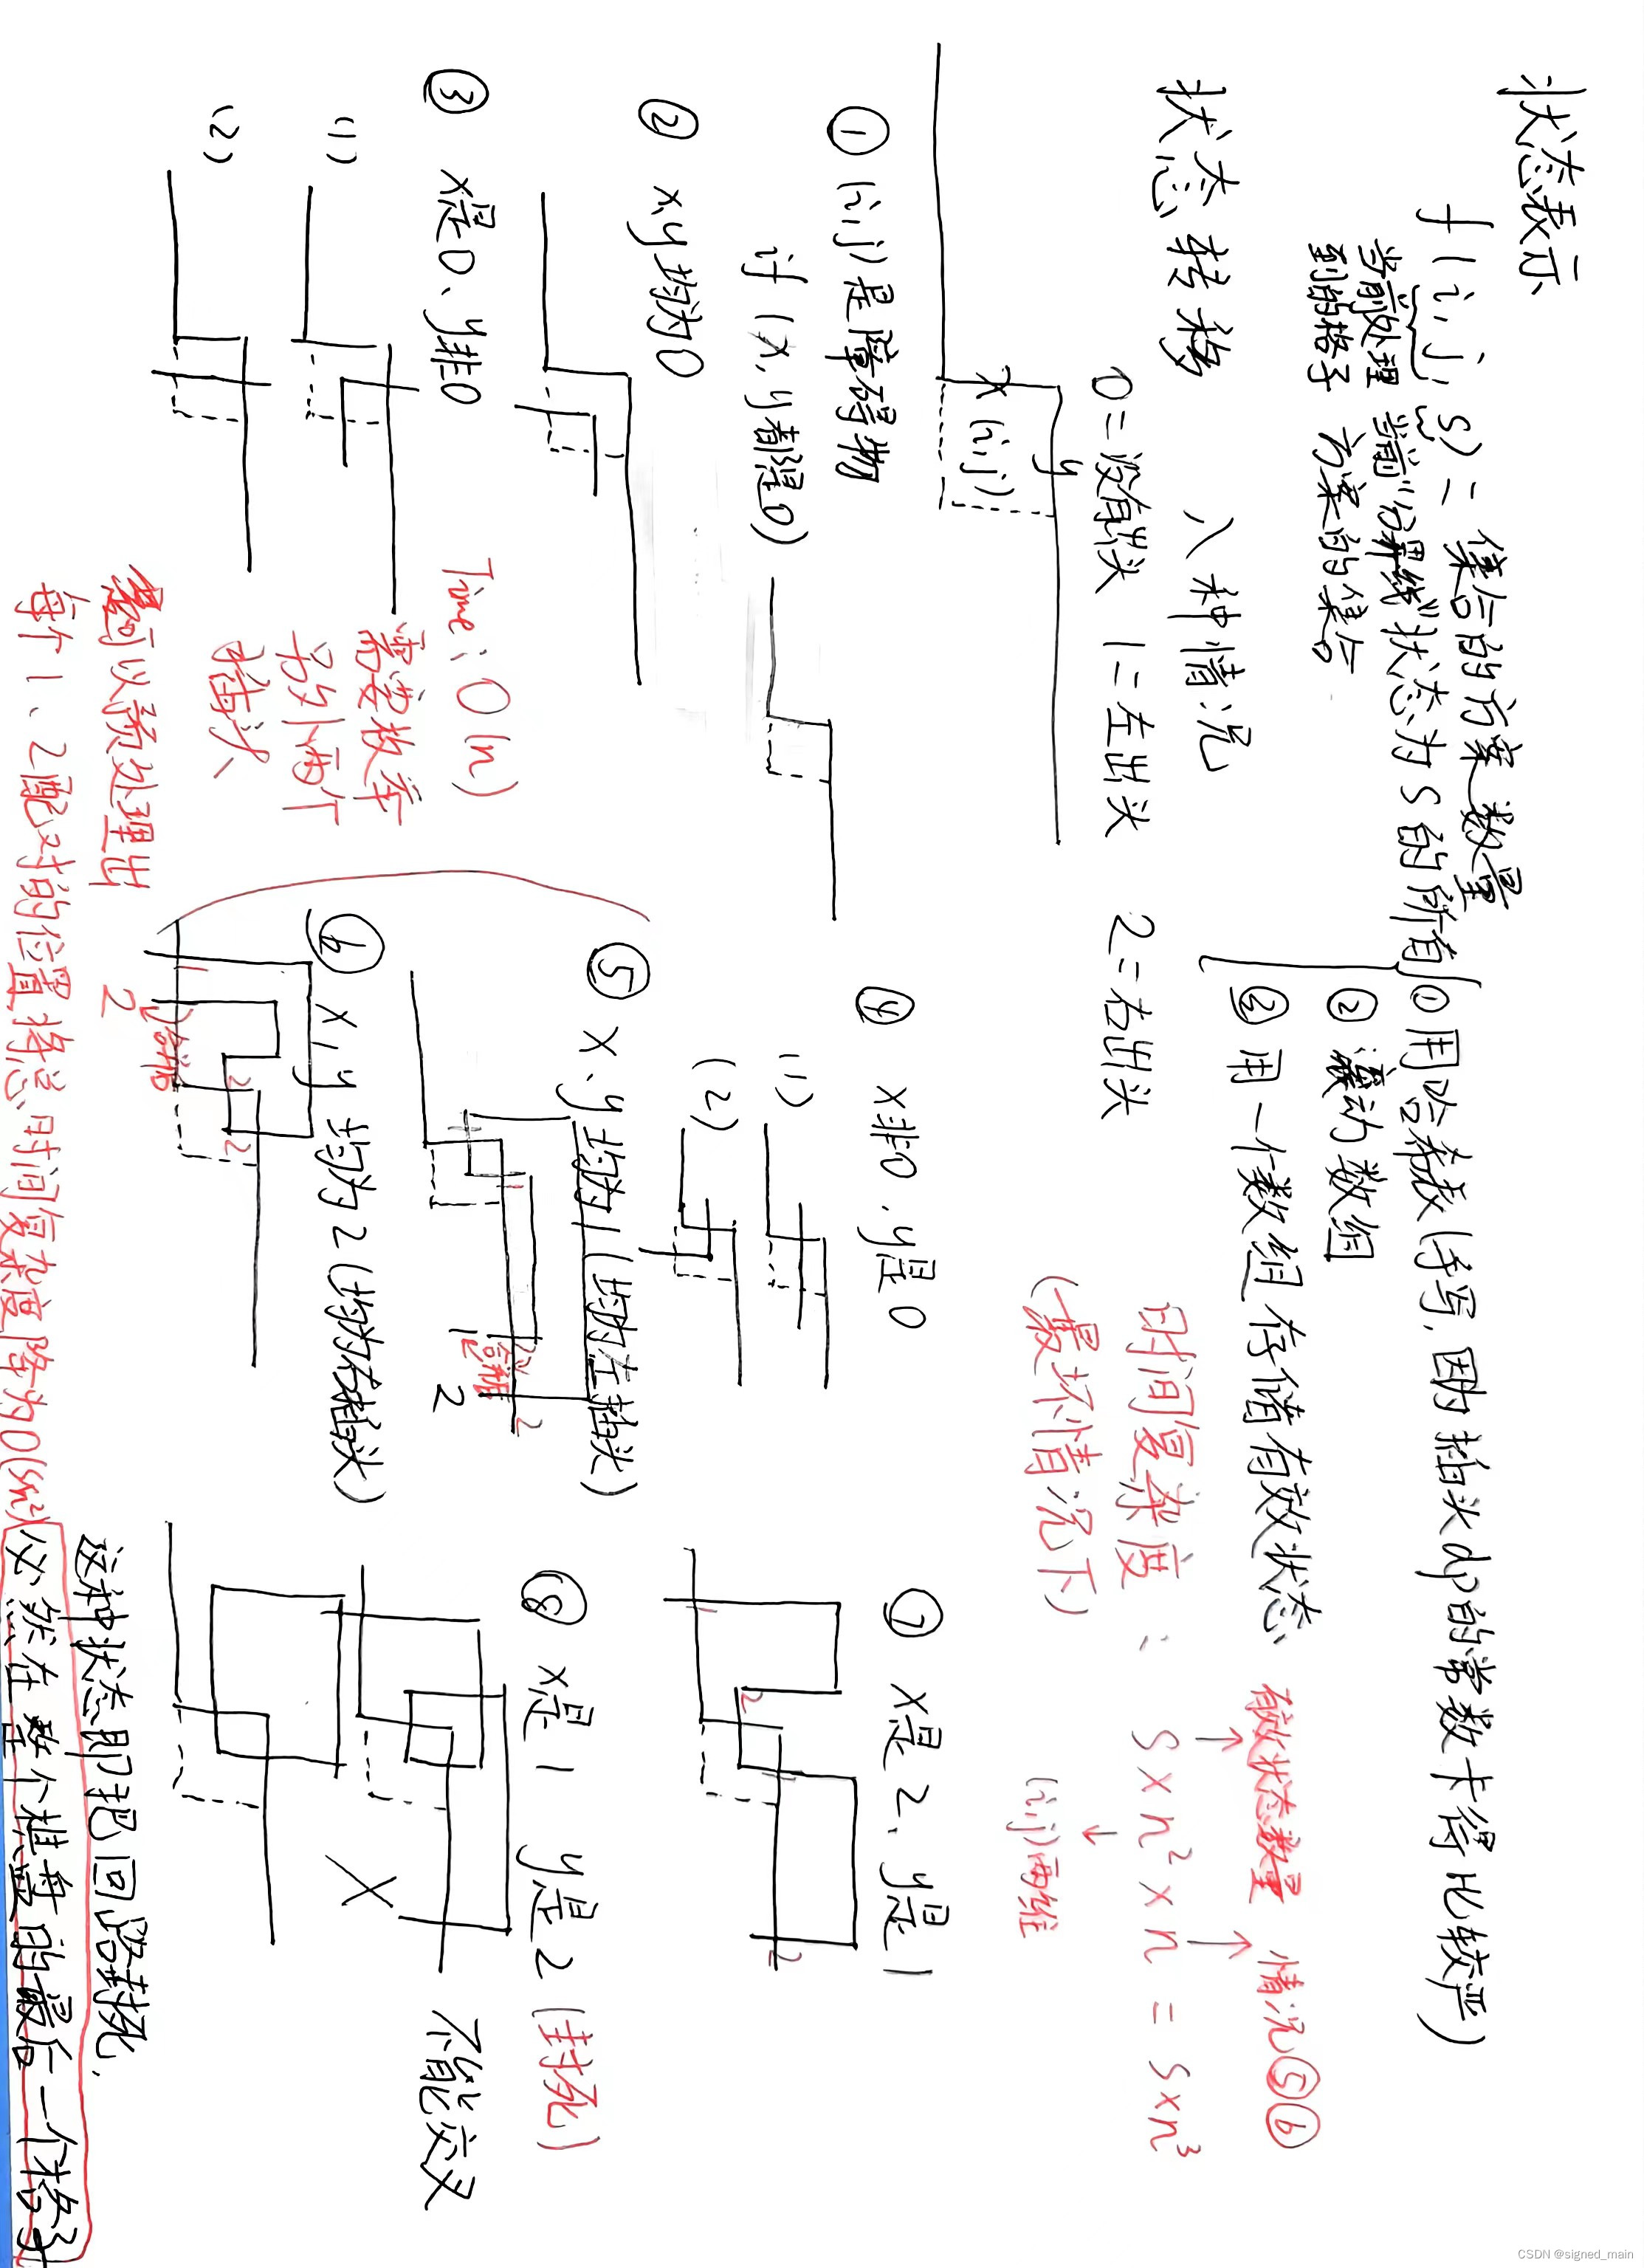 状态表示
f(i,j,s) = 集合的方案数量
当前处理到的格子
当前"分界线"状态为s的所有方案的集合
① 用哈希表(手写,因为插头dp的常数卡得比较严)
② 滚动数组
③ 用一个数组存储有效状态
状态转移 八种情况
0=没有插头 1=左出头 2=右出头
x
y
(i,j)
时间复杂度: S×n²×n = S×n³
(最坏情况下)
有效状态数量
(i,j)两维
情况⑤⑥
① (i,j)是障碍物
if (x,y都是0)
② x,y均为0
③ x是0、y非0
(1)
(2)
④ x非0、y是0
(1)
(2)
⑤ x、y均为1(均为左插头)
1
1
2
2
⑥ x,y均为2(均为右插头)
1
2
2
2
Time: O(n)
需要枚举
另外两个
插头
可以预处理出
每个1、2配对的位置,将总时间复杂度降为O(Sn²)
⑦ x是2、y是1
1
2
1
2
⑧ x是1 y是2 (封死)
X 不能交叉
这种状态即把回路封死,
必然在整个棋盘的最后一个格子
CSDN @signed_main